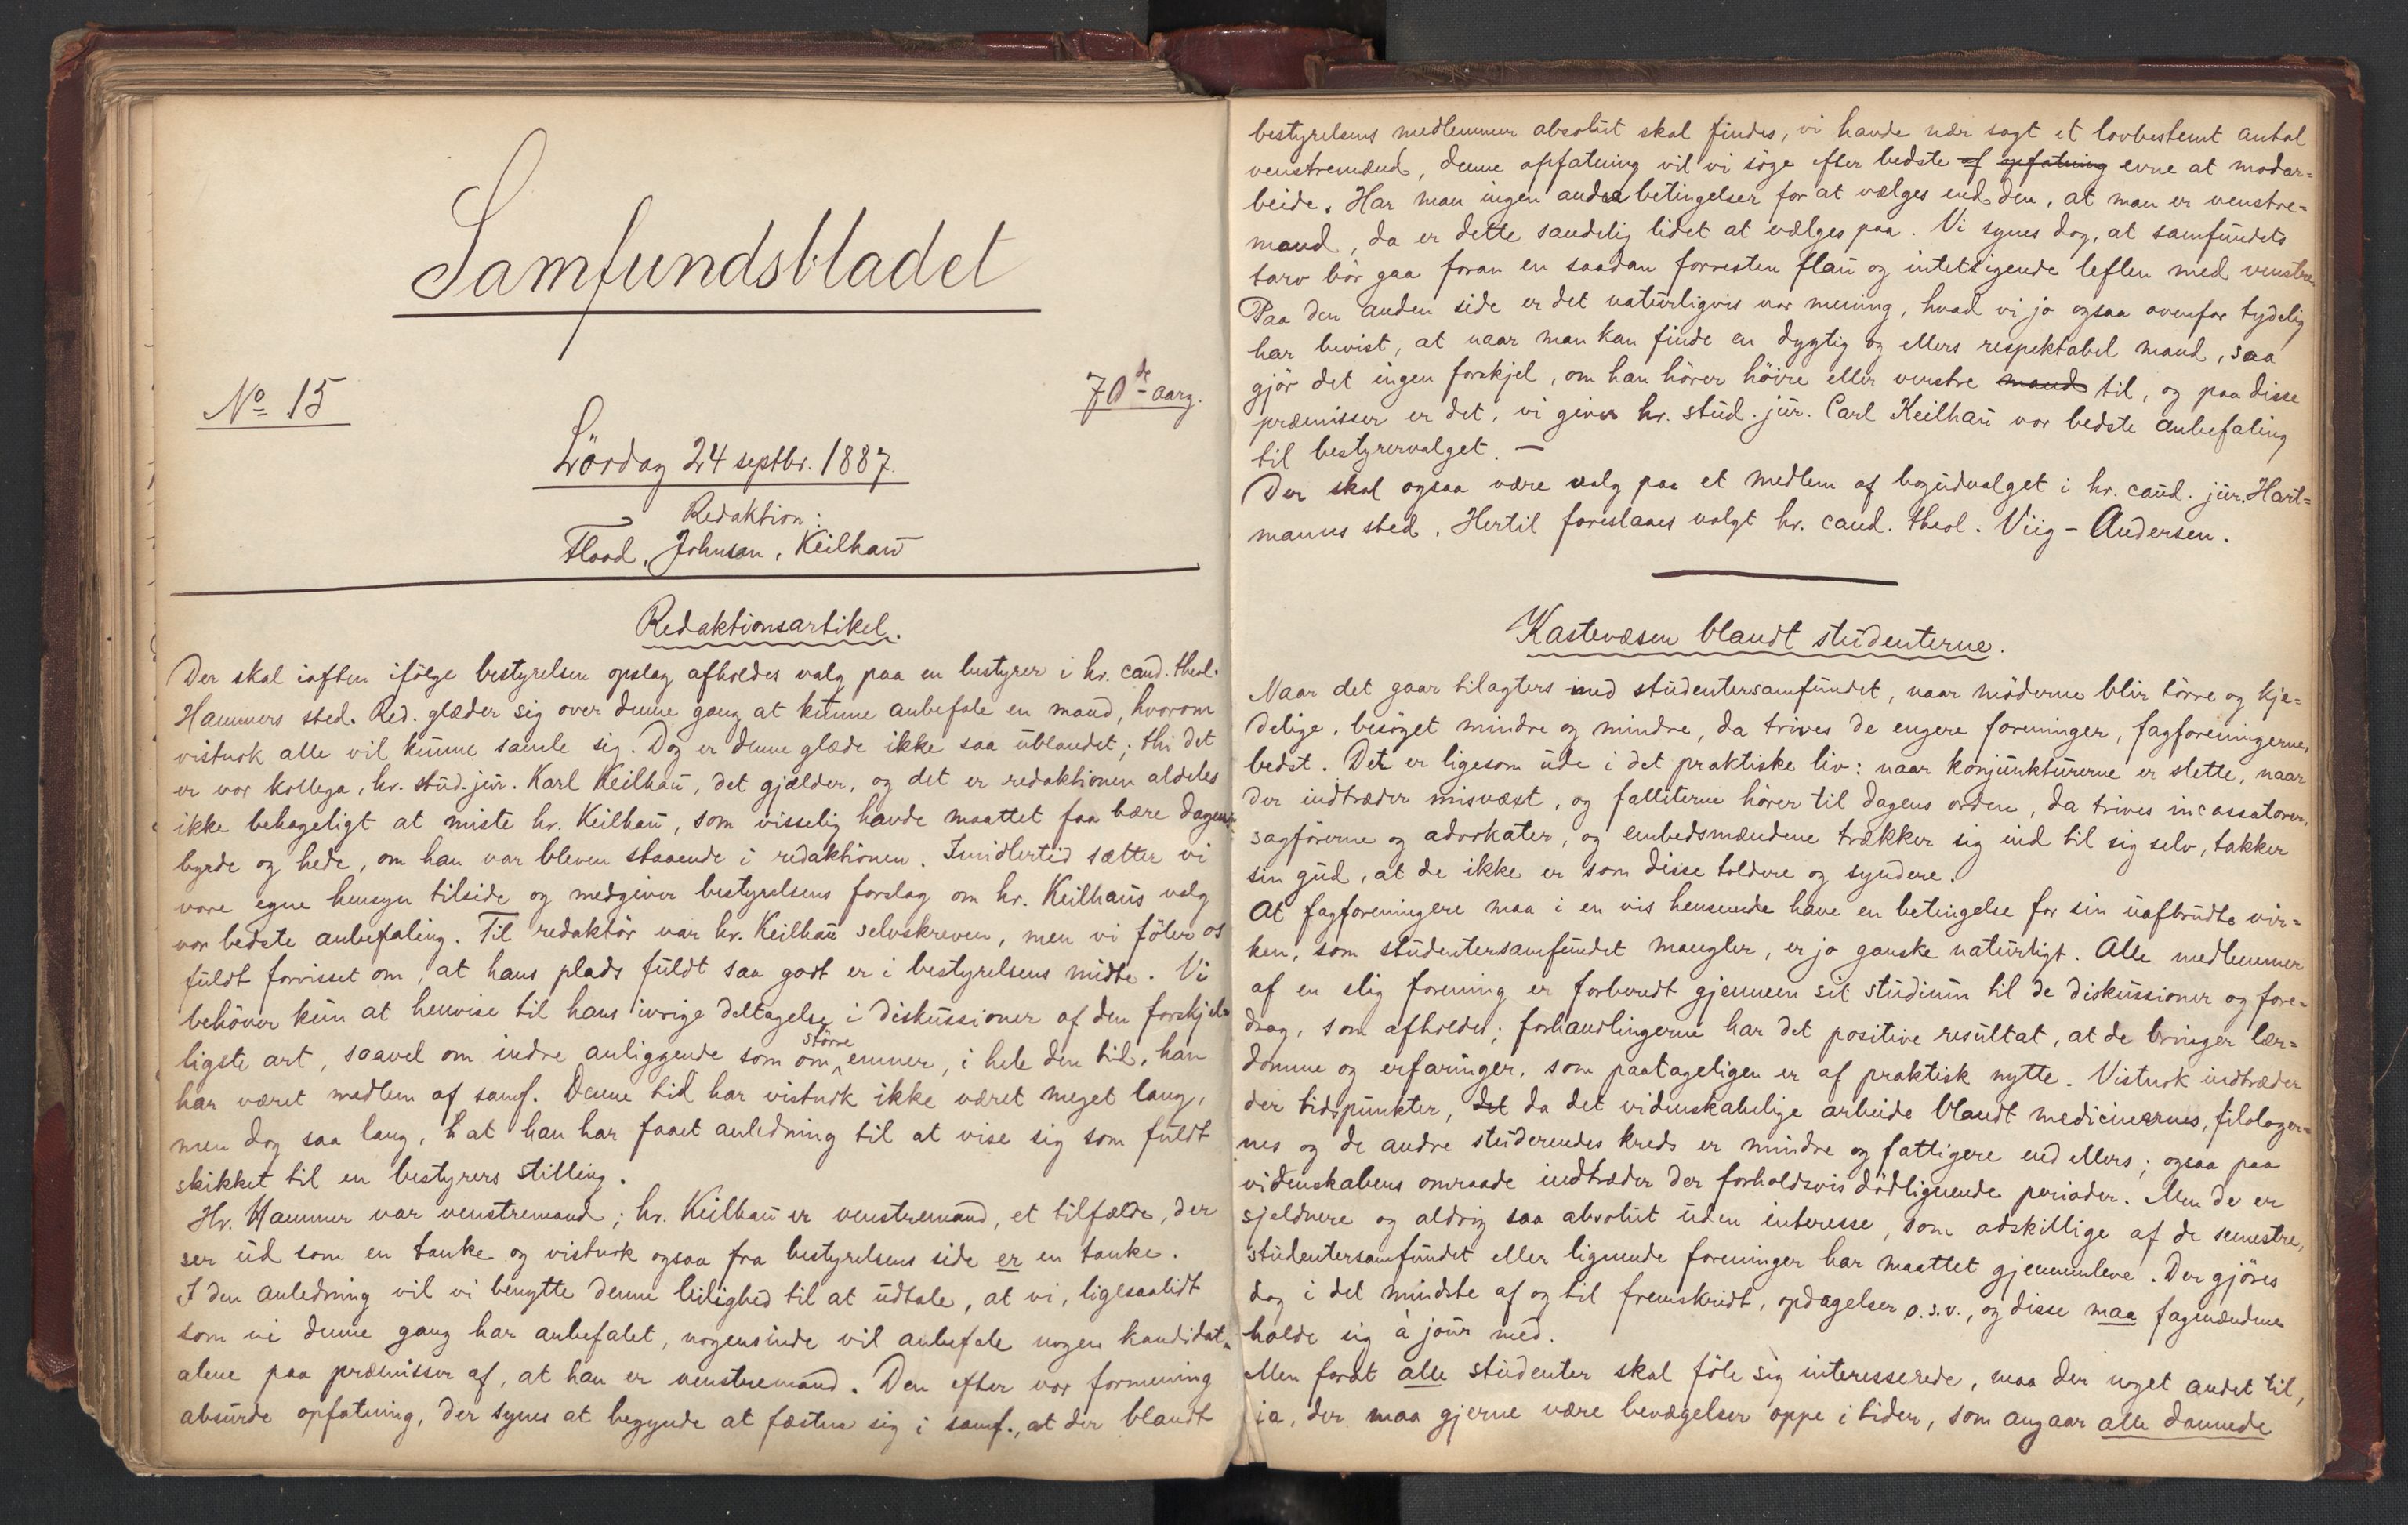 Samfundsbladet
No 15
70de aarg.
Lördag 24 septbr. 1887.
Redaktion:
Flood, Johnson, Keilhau
Redaktionsartikel.
Der skal iaften ifölge bestyrelsen opslag afholdes valg paa en bestyrer i hr. cand. theol.
Hammers sted. Red. glæder sig over denne gang at kunne anbefale en mand, hvorom
vistnok alle vil kunne samle sig. Dog er denne glæde ikke saa ublandet; thi det
er vor kollega, hr. stud. jur. Karl Keilhau, det gjælder, og det er redaktionen aldeles
ikke behageligt at miste hr. Keilhau, som visselig havde maattet faa bære dagens
byrde og hede, om han var bleven staaende i redaktionen. Imidlertid sætter vi
vore egne hensyn tilside og medgiver bestyrelsens forslag om hr. Keilhaus valg
vor bedste anbefaling. Til redaktör var hr. Keilhau selvskreven, men vi föler os
fuldt forvisset om, at hans plads fuldt saa godt er i bestyrelsens midte. Vi
behöver kun at henvise til hans ivrige deltagelse i diskussioner af den forskjel-
ligste art, saavel om indre anliggende som om större emner, i hele den tid, han
har været medlem af samf. Denne tid har vistnok ikke været meget lang,
men dog saa lang, at han har faaet anledning til at vise sig som fuldt
skikket til en bestyrers stilling.
Hr. Hammer var venstremand; hr. Keilhau er venstremand, et tilfælde, der
ser ud som en tanke og vistnok ogsaa fra bestyrelsens side er en tanke.
I den anledning vil vi benytte denne leilighed til at udtale, at vi, ligesaalidt
som vi denne gang har anbefalet, nogensinde vil anbefale nogen kandidat
alene paa præmisser af, at han er venstremand. Den efter vor formening
absurde opfatning, der synes at begynde at fæstne sig i samf., at der blandt
bestyrelsens medlemmer absolut skal findes, vi havde nær sagt et lovbestemt antal
venstremænd, denne opfatning vil vi söge efter bedste af opfatning evne at modar-
beide. Har man ingen andre betingelser for at vælges end den, at man er venstre-
mand, da er dette sandelig lidet at vælges paa. Vi synes dog, at samfundets
tarv bör gaa foran en saadan forresten flau og intetsigende leflen med venstre.
Paa den anden side er det naturligvis vor mening, hvad vi jo ogsaa ovenfor tydelig
har bevist, at naar man kan finde en dygtig og ellers respektabel mand, saa
gjör det ingen forskjel, om han hörer höire eller venstre mand til, og paa disse
præmisser er det, vi giver hr. stud. jur. Carl Keilhau vor bedste anbefaling
til bestyrervalget. —
Der skal ogsaa være valg paa et medlem af bogudvalget i hr. cand. jur. Hart-
manns sted. Hertil foreslaaes valgt hr. cand. theol. Viig-Andersen.
Kastevæsen blandt studenterne.
Naar det gaar tilagters med studentersamfundet, naar möderne blir törre og kje-
delige, besöget mindre og mindre, da trives de engere foreninger, fagforeningerne,
bedst. Det er ligesom ude i det praktiske liv: naar konjunkturerne er slette, naar
der indtræder misvæxt, og falliterne hörer til dagens orden, da trives incassatorer,
sagförerne og advokater, og embedsmændene trækker sig ind til sig selv, takker
sin gud, at de ikke er som disse toldere og syndere.
At fagforeningere maa i en vis henseende have en betingelse for sin uafbrudte vir-
ken, som studentersamfundet mangler, er jo ganske naturligt. Alle medlemmer
af en slig forening er forberedt gjennem sit studium til de diskussioner og fore-
drag, som afholdes; forhandlingerne har det positive resultat, at de bringer lær-
domme og erfaringer, som paatageligen er af praktisk nytte. Vistnok indtræder
der tidspunkter, det da det videnskabelige arbeide blandt medicinernes, filologer-
nes og de andre studerendes kreds er mindre og fattigere end ellers; ogsaa paa
videnskabens omraade indtræder der forholdsvis dödlignende perioder. Men de er
sjeldnere og aldrig saa absolut uden interesse, som adskillige af de semestre,
studentersamfundet eller lignende foreninger har maattet gjennemleve. Der gjöres
dog i det mindste af og til fremskridt, opdagelser o.s.v., og disse maa fagmændene
holde sig à jour med.
Men fordt alle studenter skal föle sig interesserede, maa der noget andet til,
ja, der maa gjerne være bevægelser oppe i tiden, som angaar alle dannede